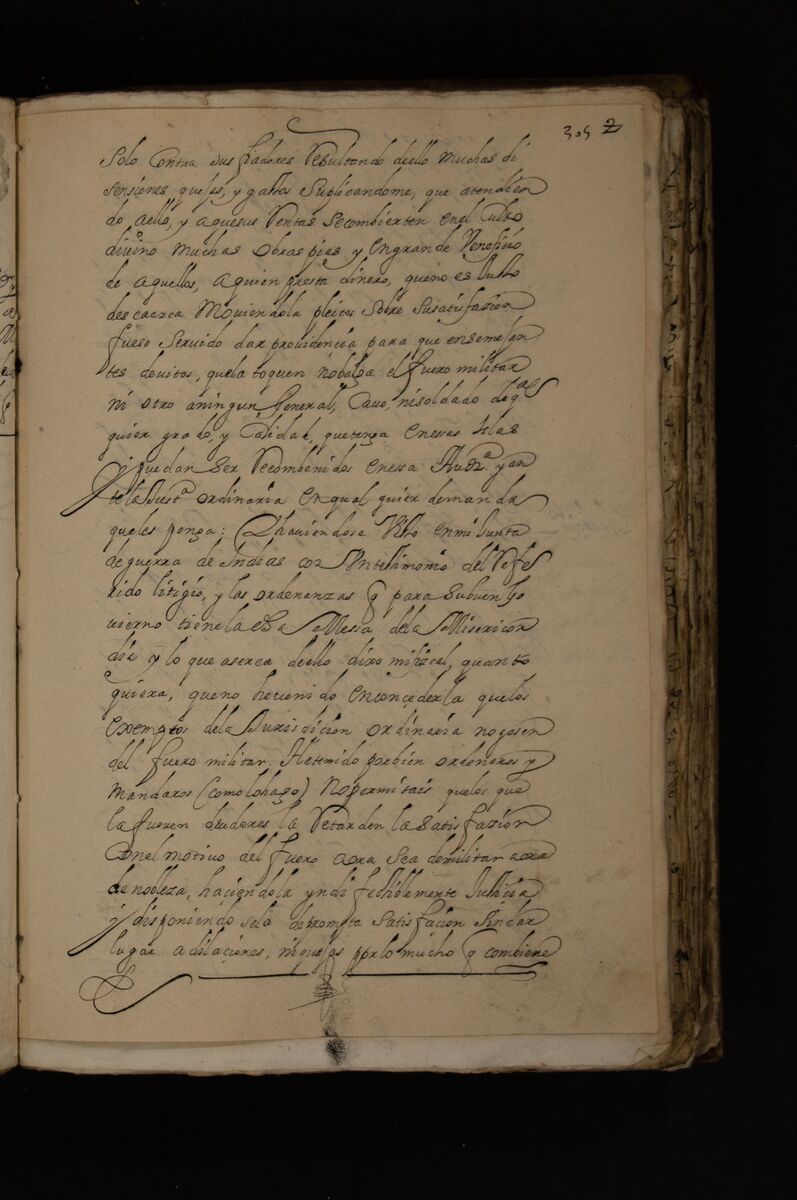 305 2
solo Contra sus fiadores Resultando deello muchas di
sensiones quejas, y gastos suplicandome, que atendien
do aello, y aquesus Rentas secombierten enel Culto
divino muchas obras pies y engrande Venefiçio
de aquellos, aquien presta dinero, queno es Justo
descaezca moviendola pleitos sobre susatisfazion
fuese servido dar providencia para que ensemejan
tes devitos, quela toquen nobalga el fuero militar
ni otro aningun General, Cavo, nisoldado deqal
quier grado, y Calidad, quetenga enessas Islas
y puedan ser Recombenidos enessa Audª. y an
tela Justª ordinaria en qual quier demanda
queles ponga: Y haviendose Visto enmi Junta
deguerra de Indias con Vntestimonio del Refe
rido litigio, y las ordenanzas q para subuen go
vierno tienela dha Messa dela Misericor
dia y lo que aserca deello dixo mifiscal, quanto
quiera, queno hevenido enconcederla quelos
exemptos dela Jurisdicion ordinaria nogosen
del fuero militar. Hetenido porbien ordenaros y
mandaros (comolohago) Nopermitais quelos que
la fueren deudores la Retarden la satisfazion
Conel motivo del fuero aora sea demilitar aora
denobleza, haciendola yndefectiblemente Justicia
y disponiendo sela depromta satisfacion sindar
lugar adilaciones, niquejas porlo mucho q combiene